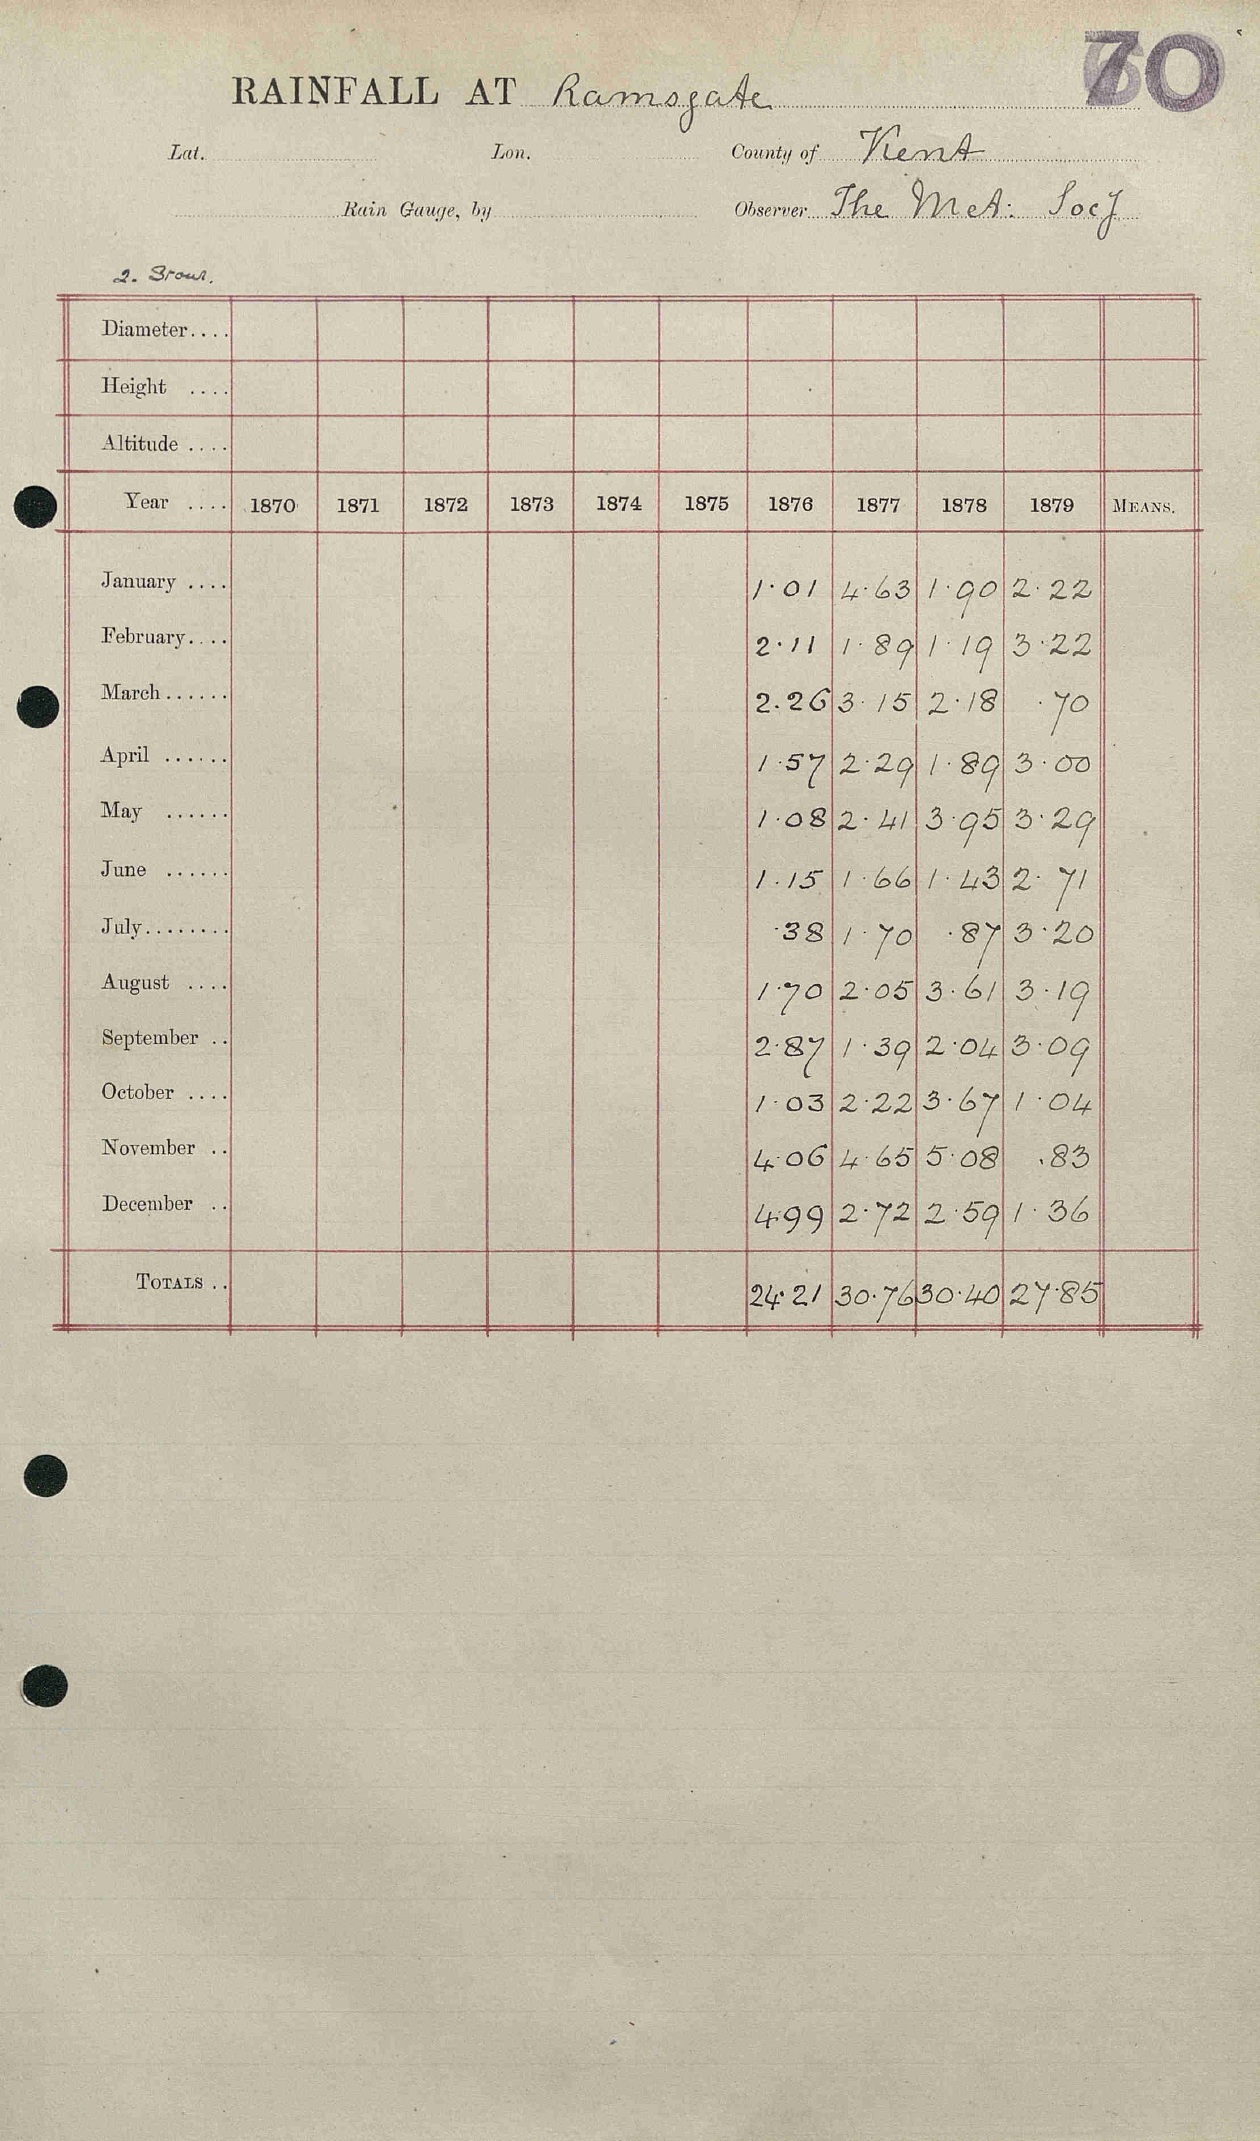 70
RAINFALL AT Ramsgate
Lat. Lon. County of Kent
Rain Gauge, by Observer The Met: Socy
2. Stour.
Diameter....
Height ....
Altitude ....
Year .... 1870 1871 1872 1873 1874 1875 1876 1877 1878 1879 MEANS.
January .... 1.01 4.63 1.90 2.22
February.... 2.11 1.89 1.19 3.22
March...... 2.26 3.15 2.18 .70
April ...... 1.57 2.29 1.89 3.00
May ...... 1.08 2.41 3.95 3.29
June ...... 1.15 1.66 1.43 2.71
July........ .38 1.70 .87 3.20
August .... 1.70 2.05 3.61 3.19
September .. 2.87 1.39 2.04 3.09
October .... 1.03 2.22 3.67 1.04
November .. 4.06 4.65 5.08 .83
December .. 4.99 2.72 2.59 1.36
TOTALS .. 24.21 30.76 30.40 27.85